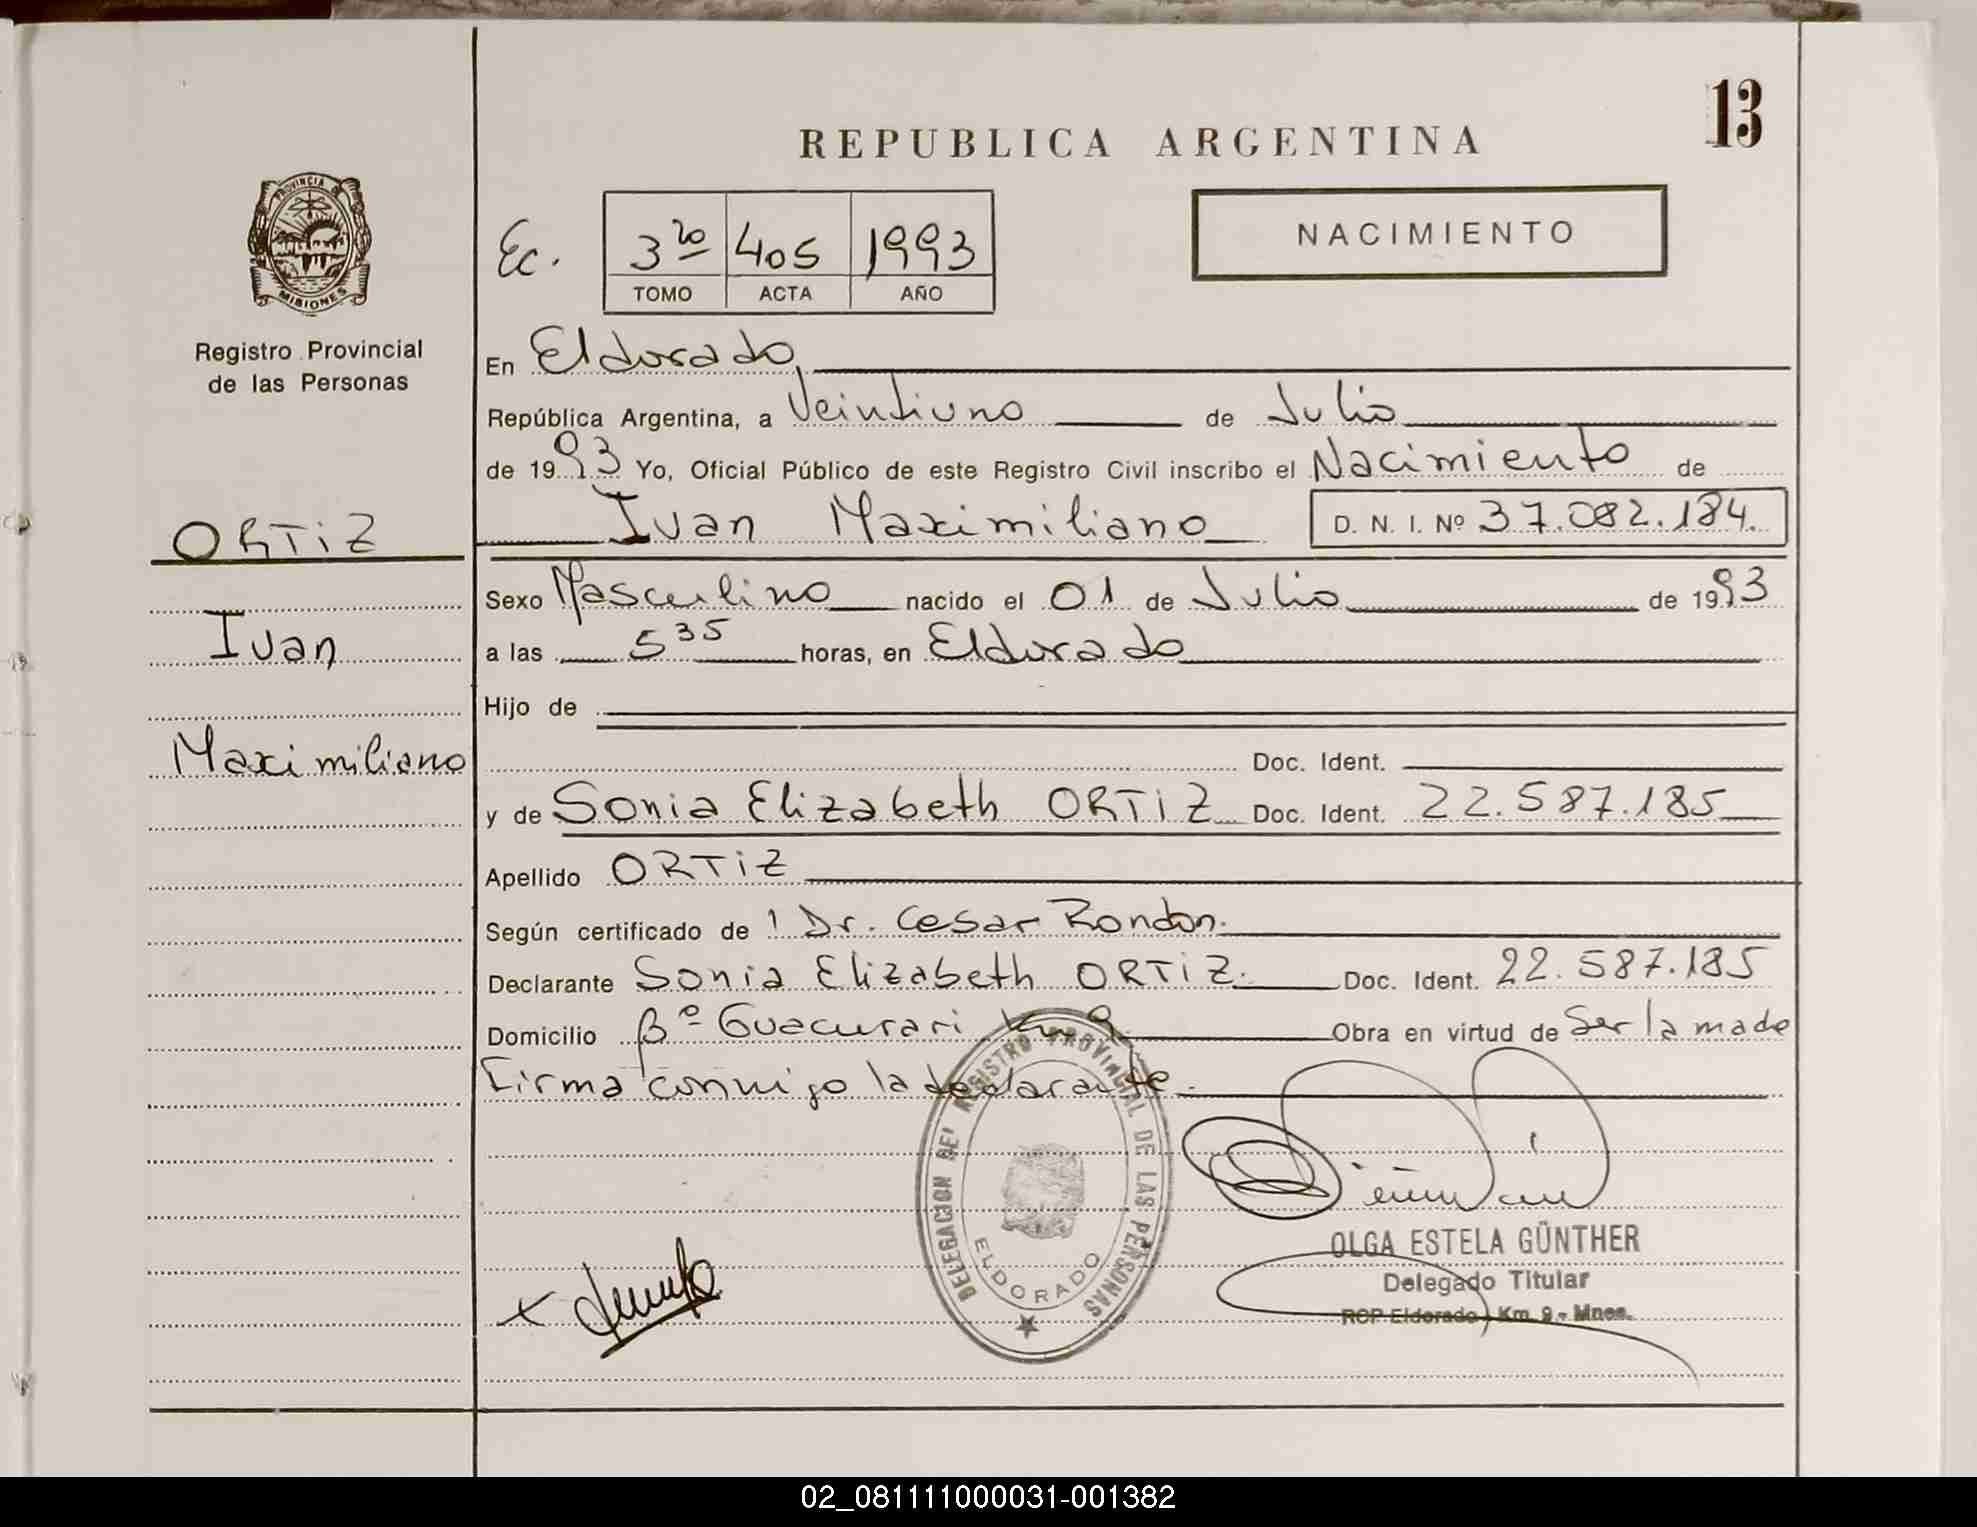 13
REPUBLICA ARGENTINA
PROVINCIA DE
MISIONES
Registro Provincial
de las Personas
Ec. 3ro 405 1993
TOMO ACTA AÑO
NACIMIENTO
En Eldorado,
República Argentina, a Veintiuno de Julio
de 1993 Yo, Oficial Público de este Registro Civil inscribo el Nacimiento de
Ivan Maximiliano D. N. I. Nº 37.082.184.
ORTIZ
Sexo Masculino nacido el 01 de Julio de 1993
Ivan
a las 5 35 horas, en Eldorado
Hijo de
Maximiliano
Doc. Ident.
y de Sonia Elizabeth ORTIZ Doc. Ident. 22.587.185
Apellido ORTIZ
Según certificado de Dr. Cesar Rondon.
Declarante Sonia Elizabeth ORTIZ. Doc. Ident. 22.587.185
Domicilio Bº Guacurari Km 9 Obra en virtud de Ser la made
Firma conmigo la declarante.
DELEGACION DEL REGISTRO PROVINCIAL DE LAS PERSONAS
ELDORADO
OLGA ESTELA GÜNTHER
Delegado Titular
RCP Eldorado Km. 9 - Mnes.
02_081111000031-001382